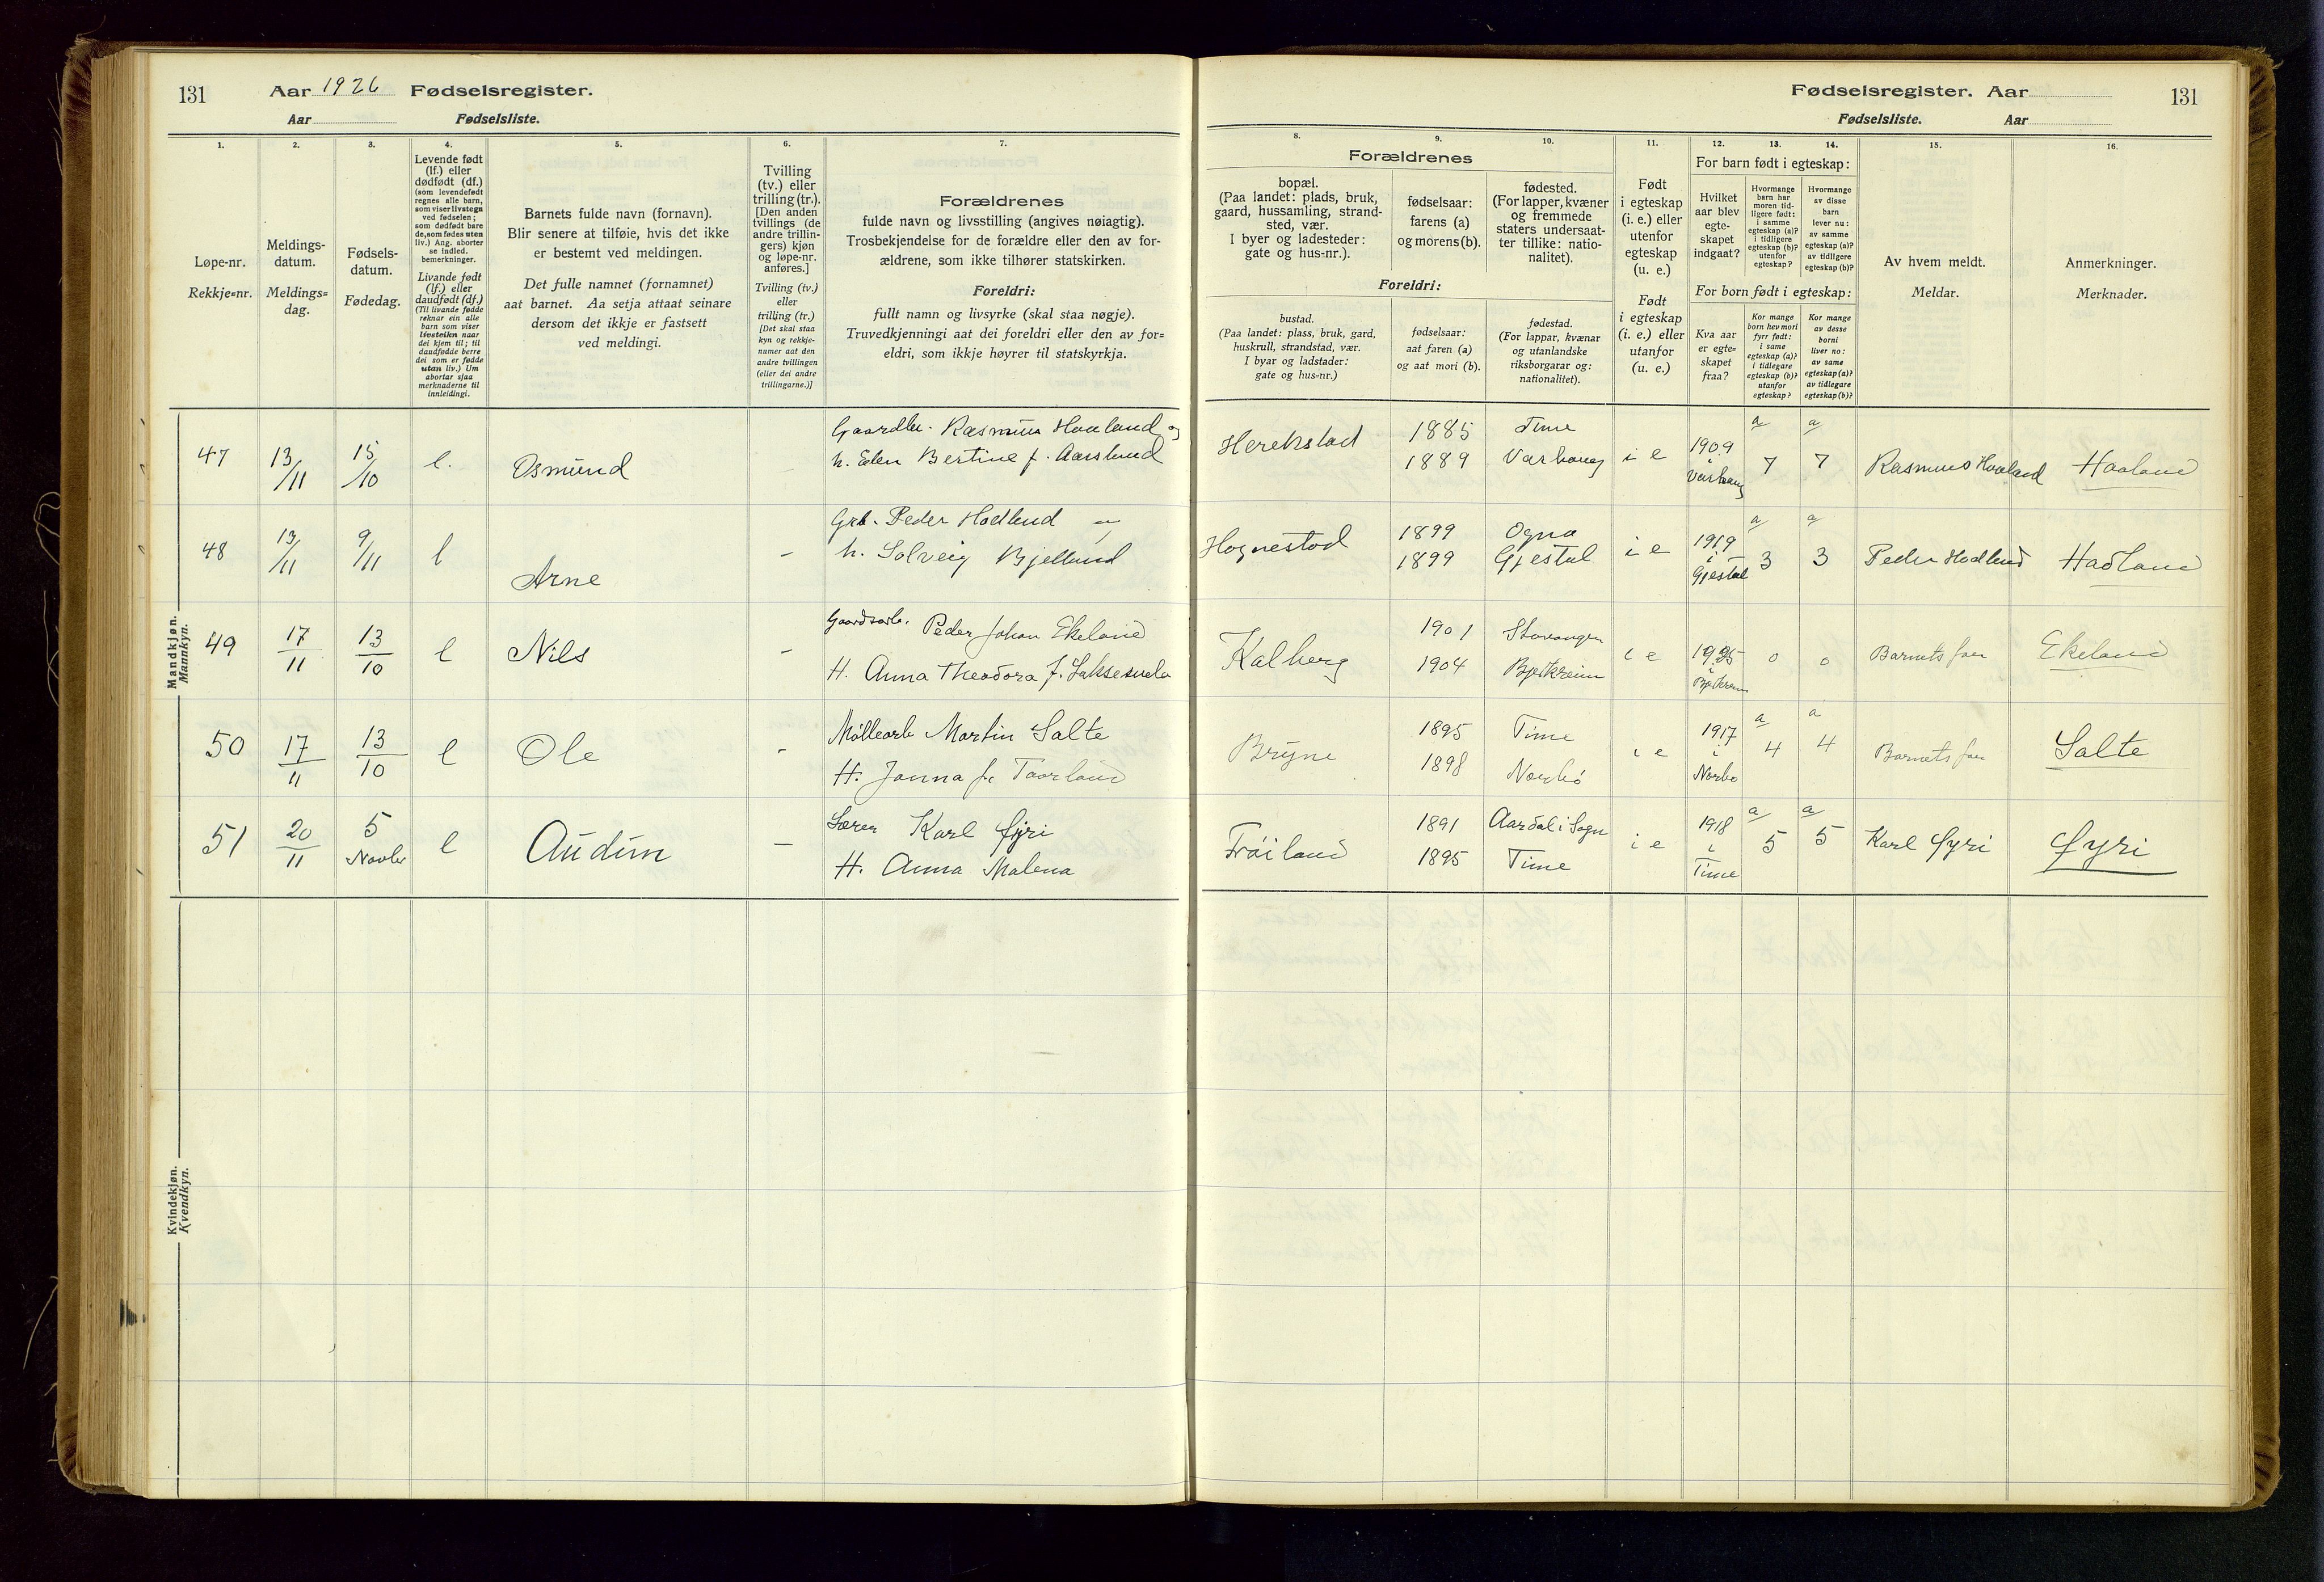 131 Aar 1926 Fødselsregister.
Aar Fødselsliste.
1.
2.
3.
4.
5.
6.
7.
Løpe-nr.
Rekkje=nr.
Meldings-
datum.
Meldings=
dag.
Fødsels-
datum.
Fødedag.
Levende født
(lf.) eller
dødfødt (df.)
(som levendefødt
regnes alle barn,
som viser livstegn
ved fødselen;
som dødfødt bare
de, som fødes uten
liv.) Ang. aborter
se indled.
bemerkninger.
Livande født
(lf.) eller
daudfødt (df.)
(Til livande fødde
reknar ein alle
barn som viser
livsteikn naar
dei kjem til; til
daudfødde berre
dei som er fødde
utan liv.) Um
abortar sjaa
merknaderne til
innleidingi.
Barnets fulde navn (fornavn).
Blir senere at tilføie, hvis det ikke
er bestemt ved meldingen.
Det fulle namnet (fornamnet)
aat barnet. Aa setja attaat seinare
dersom det ikkje er fastsett
ved meldingi.
Tvilling
(tv.) eller
trilling (tr.).
[Den anden
tvillings (de
andre trillin-
gers) kjøn
og løpe-nr.
anføres.]
Tvilling (tv.)
eller
trilling (tr.)
[Det skal staa
kyn og rekkje-
numer aat den
andre tvillingen
(eller dei andre
trillingarne.)]
Forældrenes
fulde navn og livsstilling (angives nøiagtig).
Trosbekjendelse for de forældre eller den av for-
ældrene, som ikke tilhører statskirken.
Foreldri:
fullt namn og livsyrke (skal staa nøgje).
Truvedkjenningi aat dei foreldri eller den av for=
eldri, som ikkje høyrer til statskyrkja.
Mandkjøn.
Mannkyn.
47 13/11 15/10 l. Osmund
Gaardbr. Rasmus Haaland og
h. Elen Bertine f. Aarsland
48 13/11 9/11 l Arne -
Grb. Peder Hadland
h. Solveig Bjelland
49 17/11 13/10 l Nils -
Gaardsarb. Peder Johan Ekeland
H. Anna Theodora f.
50 17/11 13/10 l Ole -
Møllearb Martin Salte
H. Janna f. Taarland
51 20/11 5 Novbr l Audun -
Lærer Karl Øyri
H. Anna Malena
Kvindekjøn.
Kvendkyn.
Fødselsregister. Aar 131
Fødselsliste. Aar
8.
9.
10.
11.
12.
13.
14.
15.
16.
Forældrenes
bopæl.
(Paa landet: plads, bruk,
gaard, hussamling, strand-
sted, vær.
I byer og ladesteder:
gate og hus-nr.).
fødselsaar:
farens (a)
og morens (b).
fødested.
(For lapper, kvæner
og fremmede
staters undersaat-
ter tillike: natio-
nalitet).
Foreldri:
bustad.
(Paa landet: plass, bruk, gard,
huskrull, strandstad, vær.
I byar og ladstader:
gate og hus=nr.)
fødselsaar:
aat faren (a)
og aat mori (b).
fødestad.
(For lappar, kvænar
og utanlandske
riksborgarar og:
nationalitet).
Født
i egteskap
(i. e.) eller
utenfor
egteskap
(u. e.)
Født
i egteskap
(i. e.) eller
utanfor
(u. e.)
For barn født i egteskap:
Hvilket
aar blev
egte-
skapet
indgaat?
Hvormange
barn har
moren tid-
ligere født:
i samme
egteskap (a)?
i tidligere
egteskap (b)?
utenfor
egteskap?
Hvormange
av disse
barn
lever nu:
av samme
egteskap (a)?
av tidligere
egteskap (b)?
For born født i egteskap:
Kva aar
er egte=
skapet
fraa?
Kor mange
born hev mori
fyrr født:
i same
egteskap (a)?
i tidlegare
egteskap (b)?
utanfor
egteskap?
Kor mange
av desse
borni
liver no:
av same
egteskap (a)?
av tidlegare
egteskap (b)?
Av hvem meldt.
Meldar.
Anmerkninger.
Merknader.
Herekstad 1885 Time
1889 Varhaug i e 1909 i Varhaug a 7 a 7 Rasmus Haaland Haaland
Hognestad 1899 Ogna
1899 Gjestal i e 1919 i Gjestal a 3 a 3 Peder Hadland Hadland
Kalberg 1901 Stavanger
1904 Bjerkreim i e 1925 i Bjerkreim 0 0 Barnets faer Ekeland
Bryne 1895 Time
1898 Nærbø i e 1917 i Nærbø a 4 a 4 Barnets faer Salte
Frøiland 1891 Aardal i Sogn
1895 Time i e 1918 i Time a 5 a 5 Karl Øyri Øyri